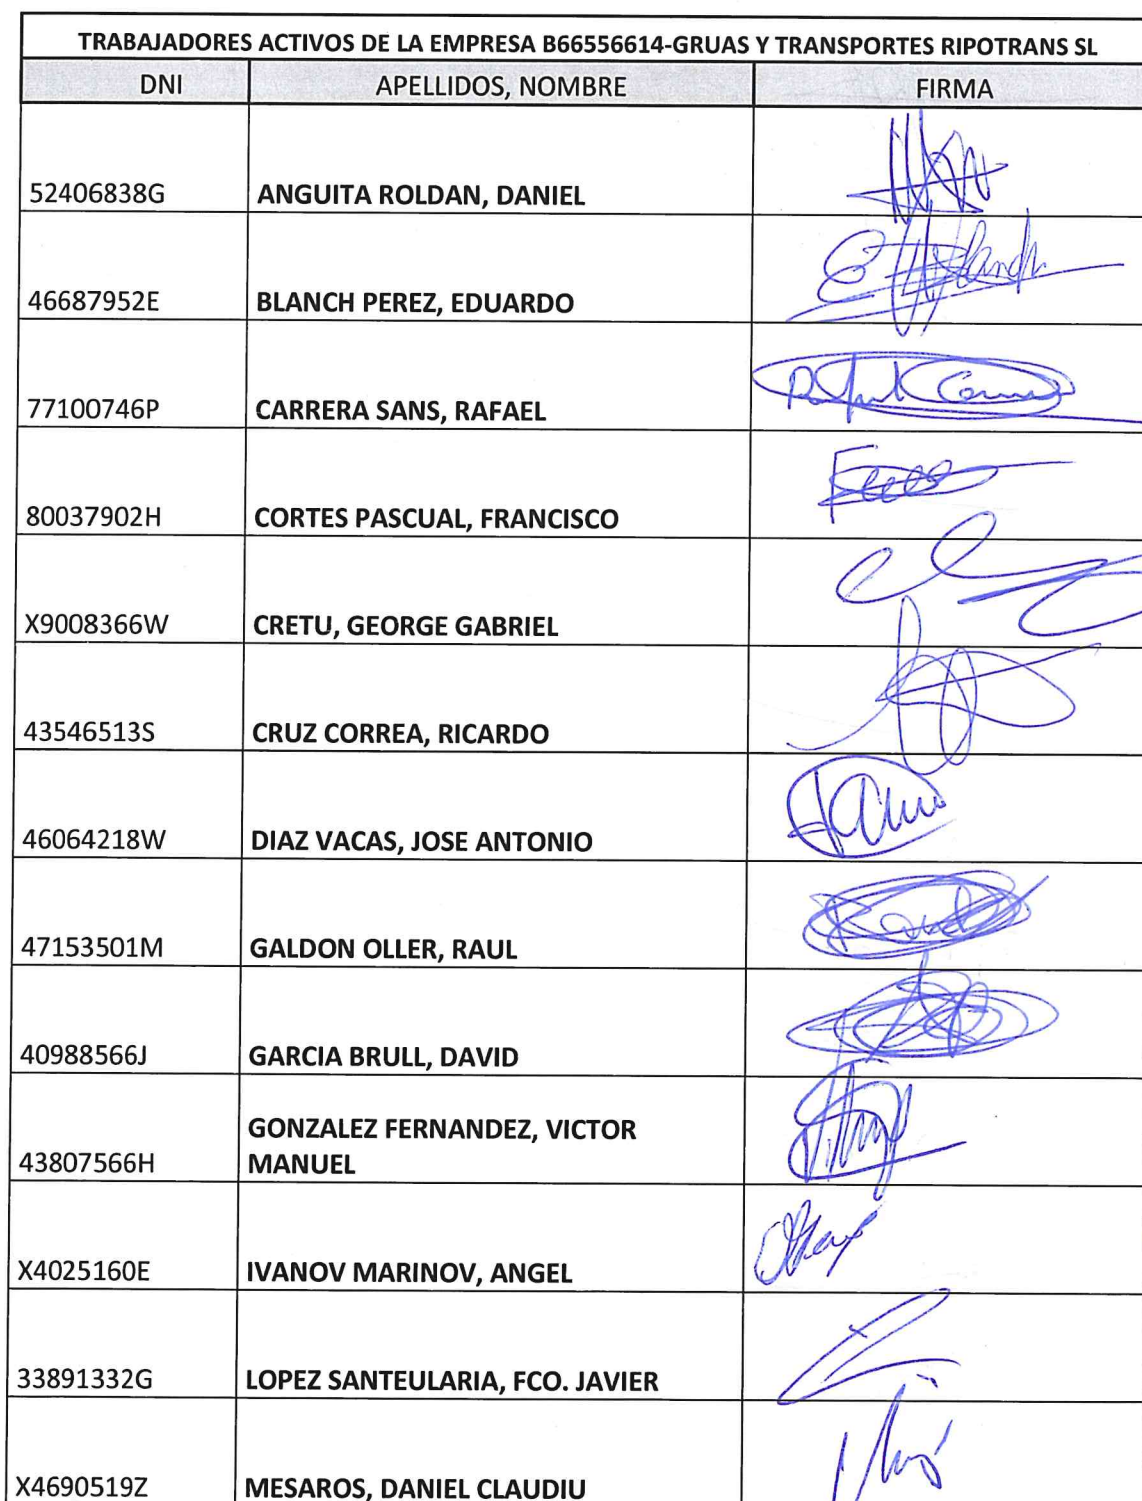 TRABAJADORES ACTIVOS DE LA EMPRESA B66556614-GRUAS Y TRANSPORTES RIPOTRANS SL
DNI APELLIDOS, NOMBRE FIRMA
52406838G ANGUITA ROLDAN, DANIEL
46687952E BLANCH PEREZ, EDUARDO
77100746P CARRERA SANS, RAFAEL
80037902H CORTES PASCUAL, FRANCISCO
X9008366W CRETU, GEORGE GABRIEL
43546513S CRUZ CORREA, RICARDO
46064218W DIAZ VACAS, JOSE ANTONIO
47153501M GALDON OLLER, RAUL
40988566J GARCIA BRULL, DAVID
GONZALEZ FERNANDEZ, VICTOR
43807566H MANUEL
X4025160E IVANOV MARINOV, ANGEL
33891332G LOPEZ SANTEULARIA, FCO. JAVIER
X4690519Z MESAROS, DANIEL CLAUDIU